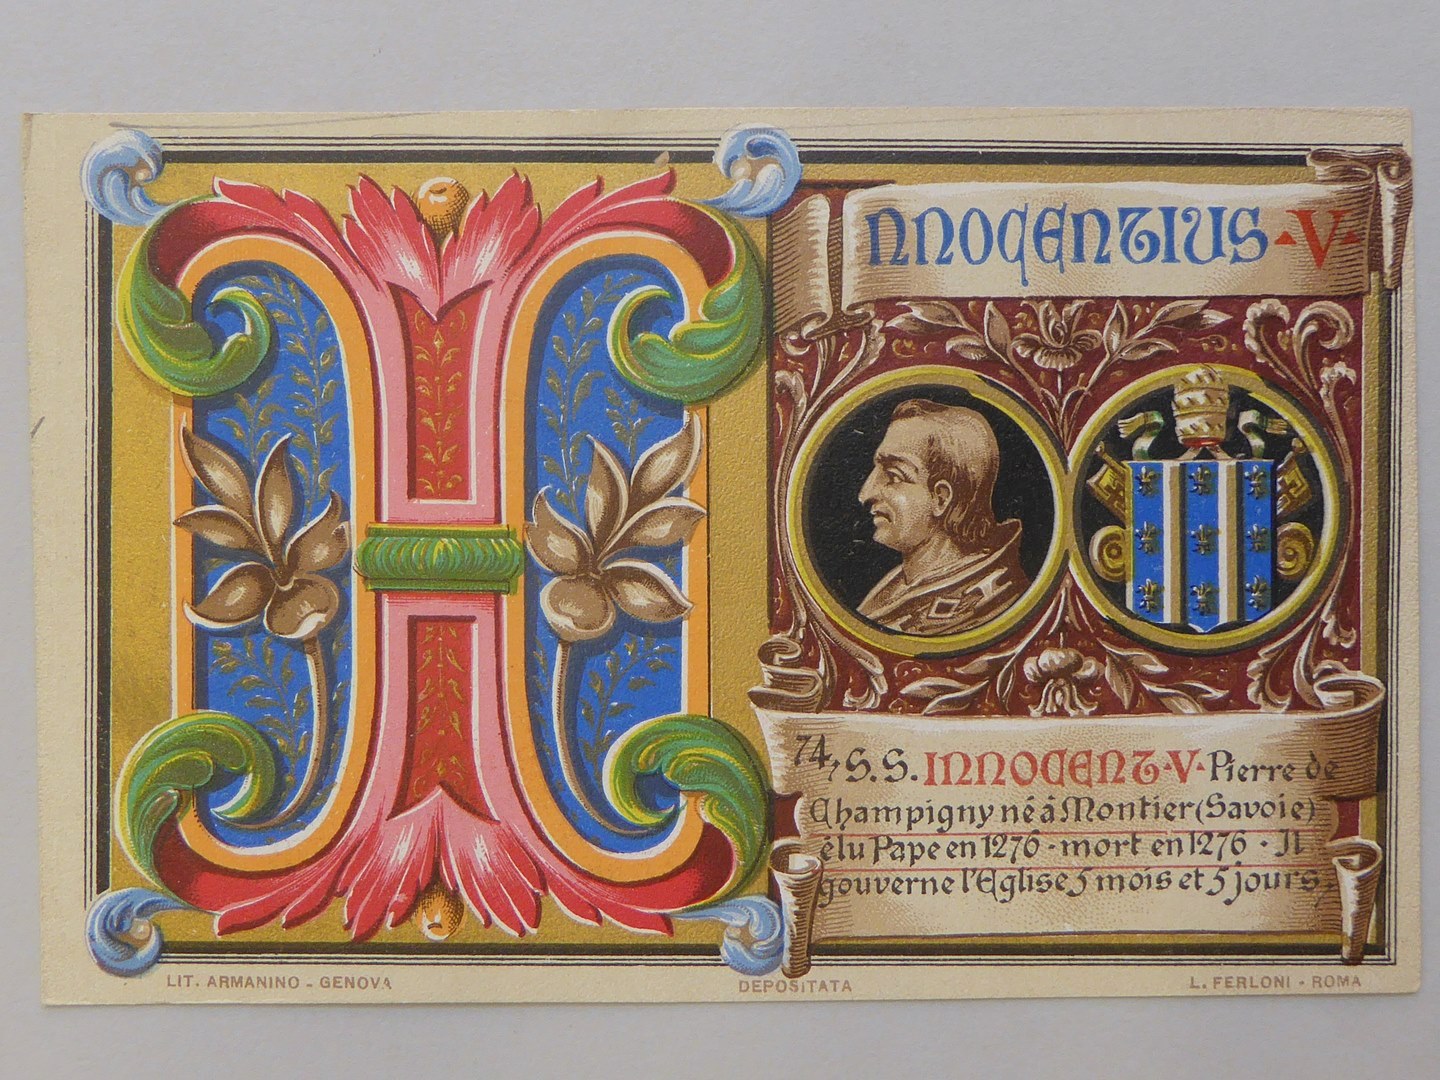 INNOCENTIUS · V ·
74, S. S. INNOCENT · V · Pierre de
Champigny né à Montier (Savoie)
élu Pape en 1276 · mort en 1276 · Il
gouverne l'Eglise 5 mois et 5 jours.
LIT. ARMANINO - GENOVA
DEPOSITATA
L. FERLONI - ROMA